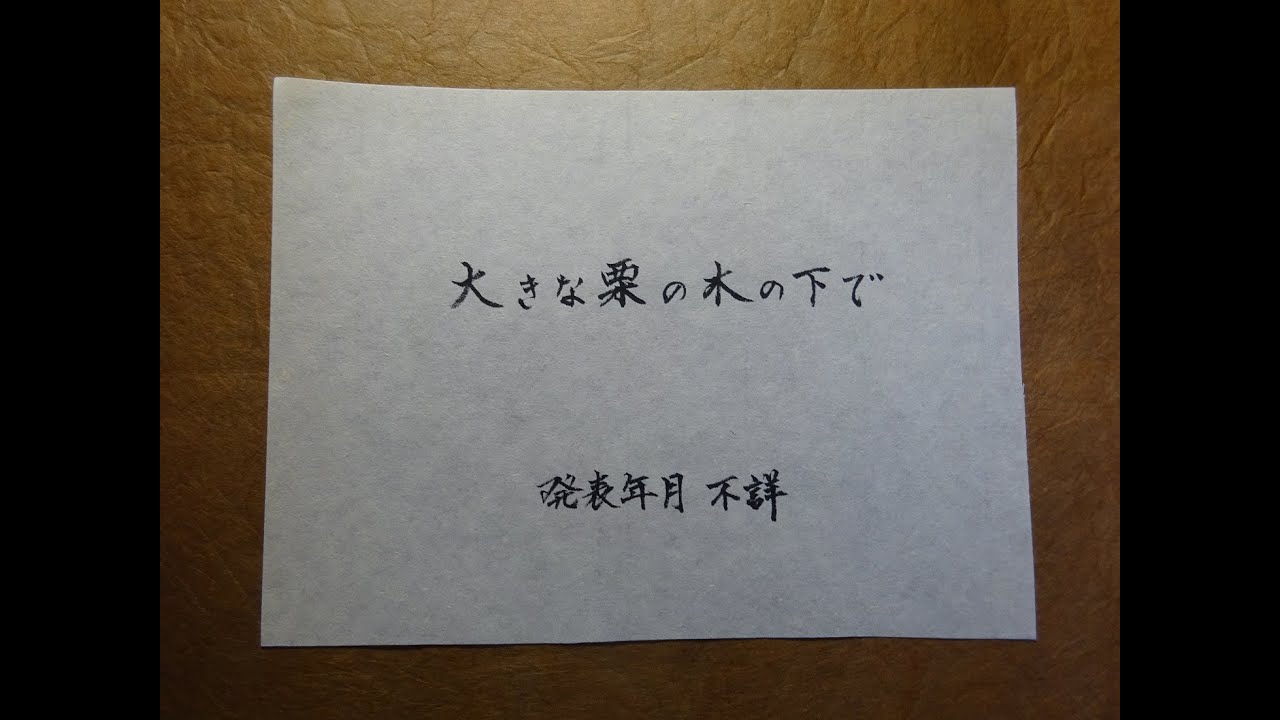 大きな栗の木の下で
発表年月 不詳